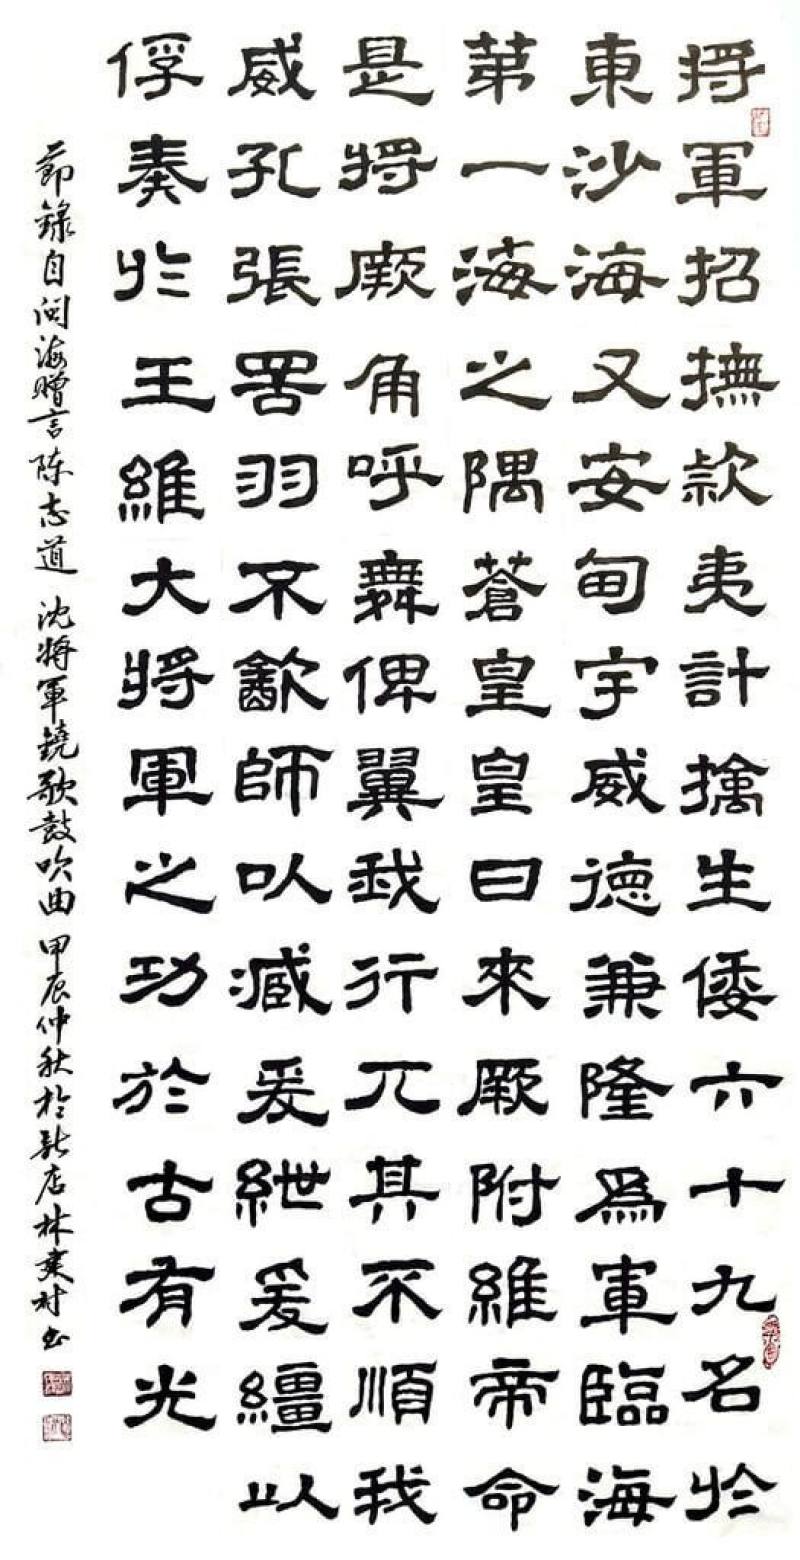 將軍招撫款夷計擒生倭六十九名於
東沙海又安甸宇威德兼隆爲軍臨海
第一海之隅蒼皇皇曰來厥附維帝命
是將厥角呼舞俾翼我行兀其不順我
威孔張罟羽不歃師以臧爰紲爰繮以
俘奏於王維大將軍之功於古有光
節錄自閩海贈言陳志道 沈將軍鐃歌鼓吹曲 甲辰仲秋於新店林村書